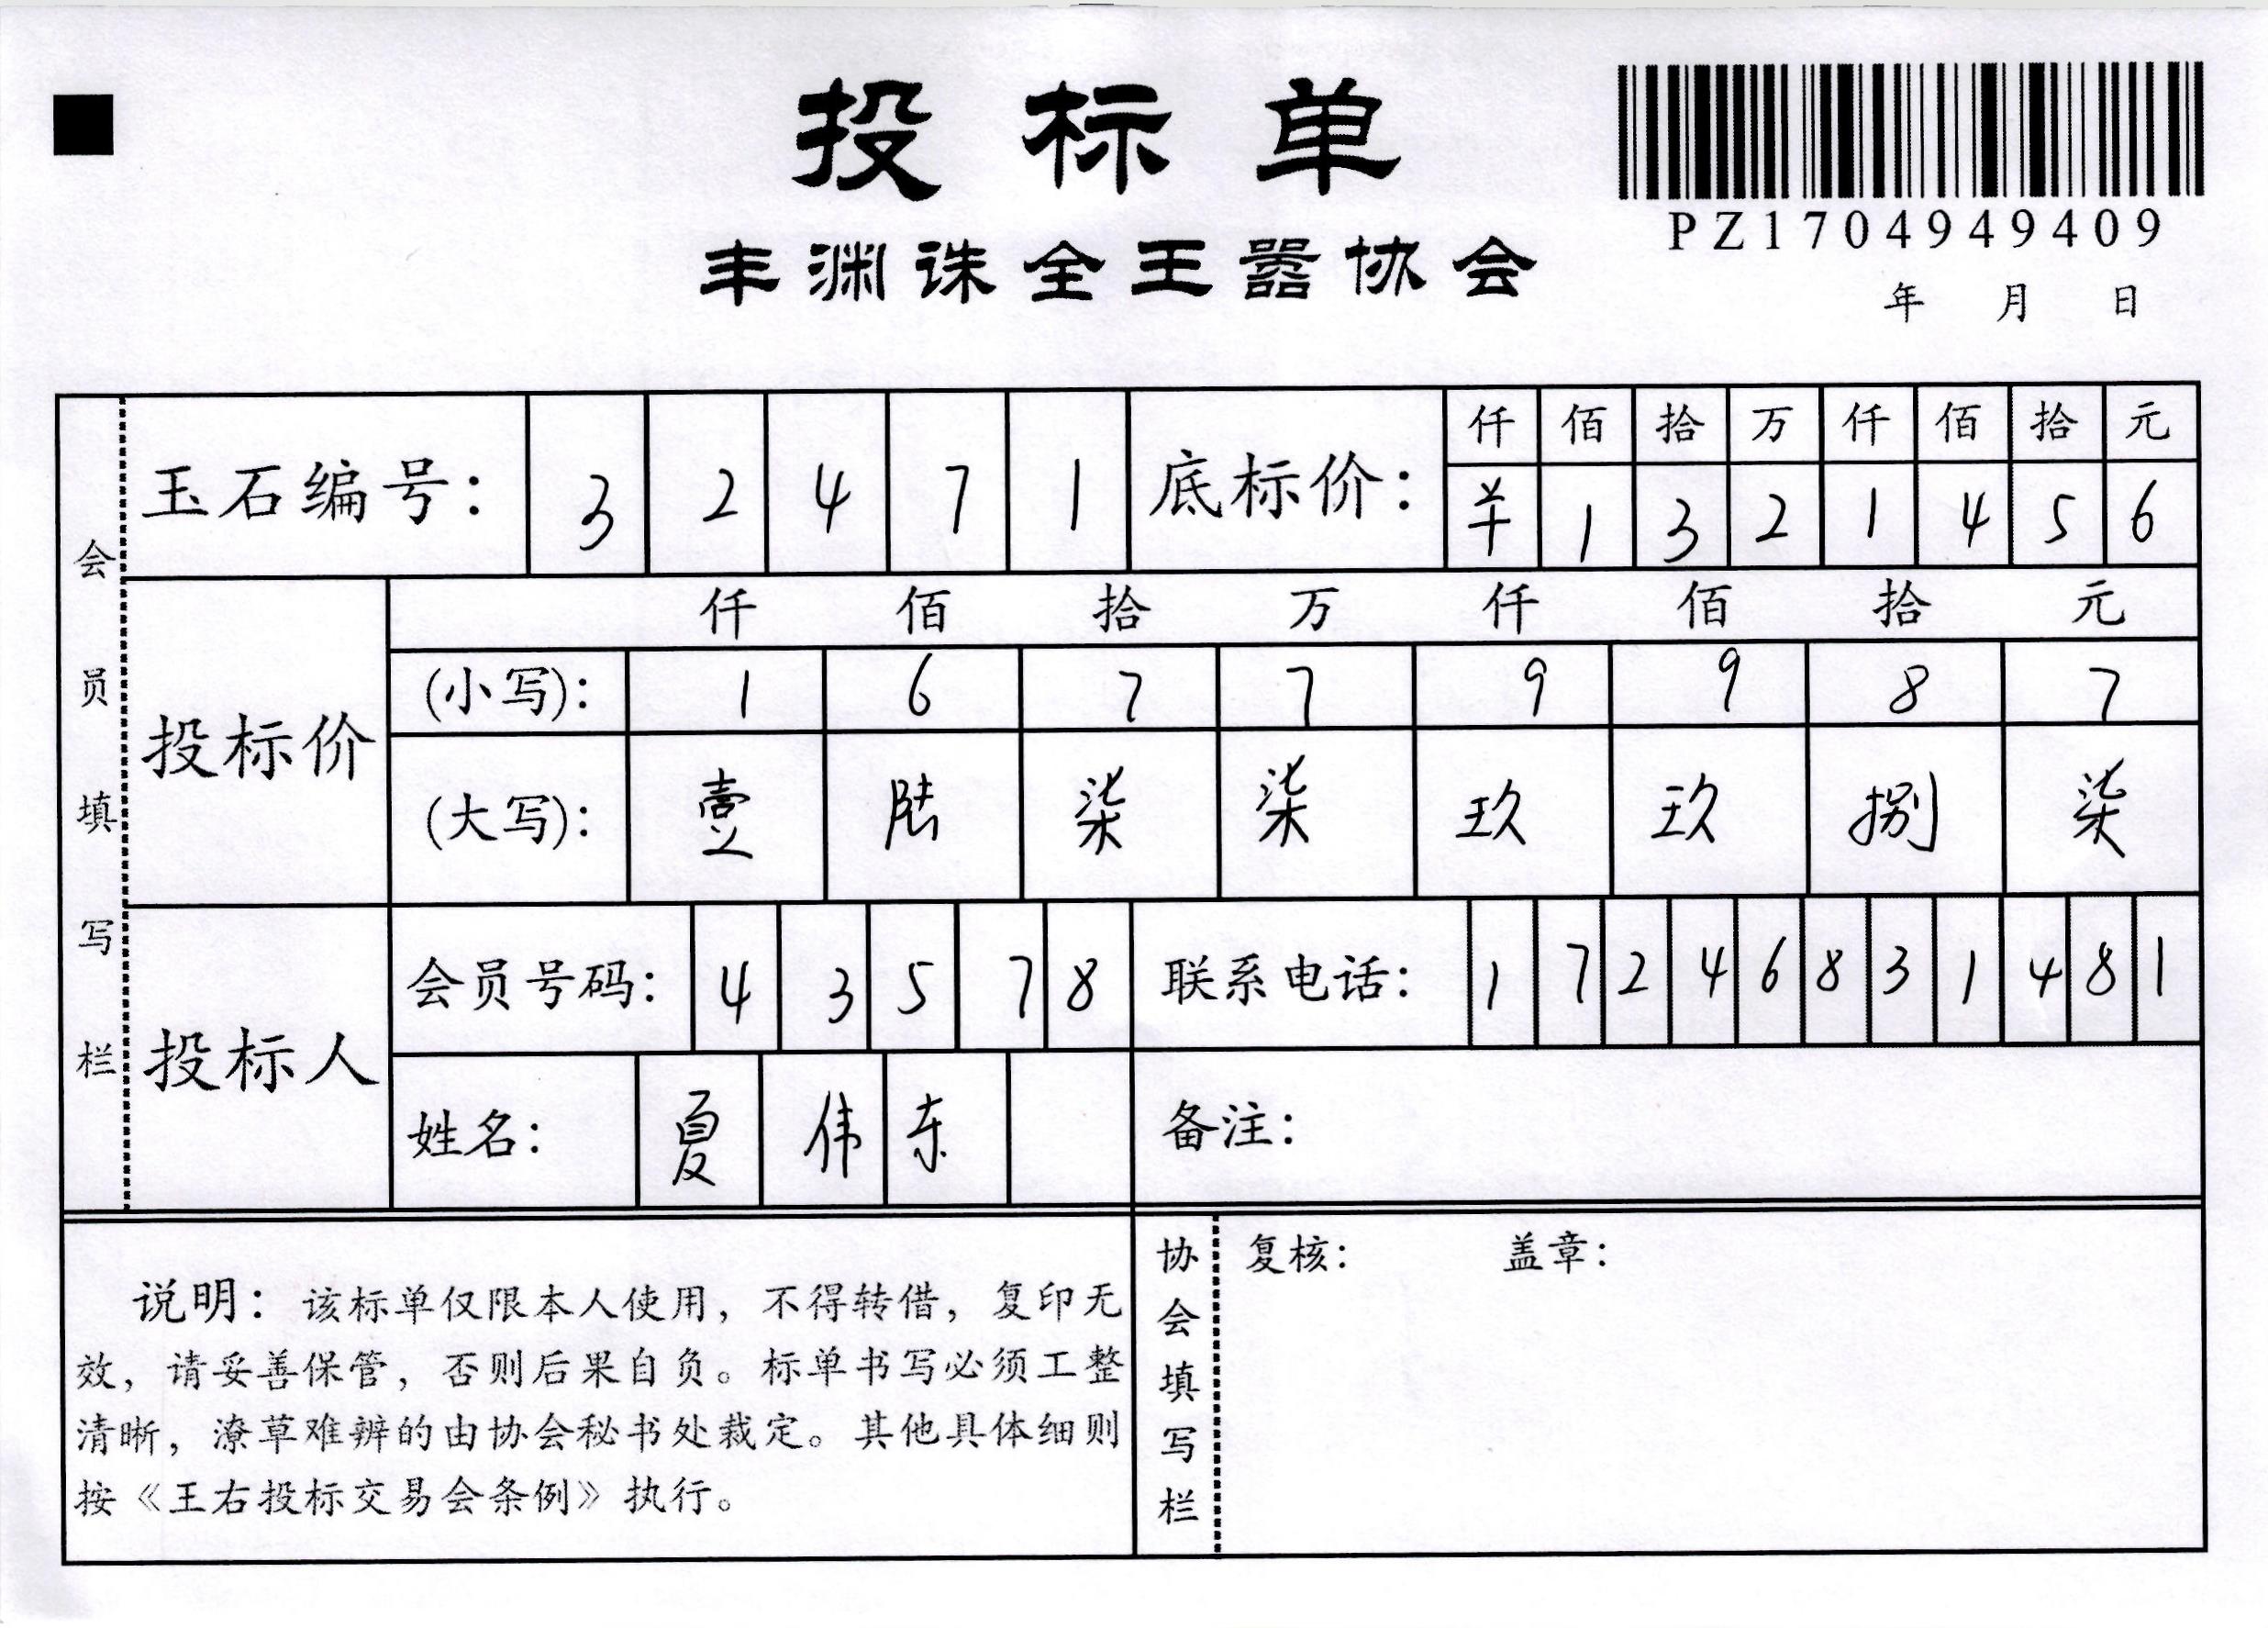 投标单
丰渊诛全王嚣协会
PZ1704949409
年 月 日
会员填写栏
玉石编号: 3 2 4 7 1
底标价: 仟 佰 拾 万 仟 佰 拾 元
¥ 1 3 2 1 4 5 6
投标价
仟 佰 拾 万 仟 佰 拾 元
(小写): 1 6 7 7 9 9 8 7
(大写): 壹 陆 柒 柒 玖 玖 捌 柒
投标人
会员号码: 4 3 5 7 8
联系电话: 1 7 2 4 6 8 3 1 4 8 1
姓名: 夏 伟 东
备注:
说明: 该标单仅限本人使用，不得转借，复印无
效，请妥善保管，否则后果自负。标单书写必须工整
清晰，潦草难辨的由协会秘书处裁定。其他具体细则
按《王右投标交易会条例》执行。
协会填写栏
复核: 盖章: